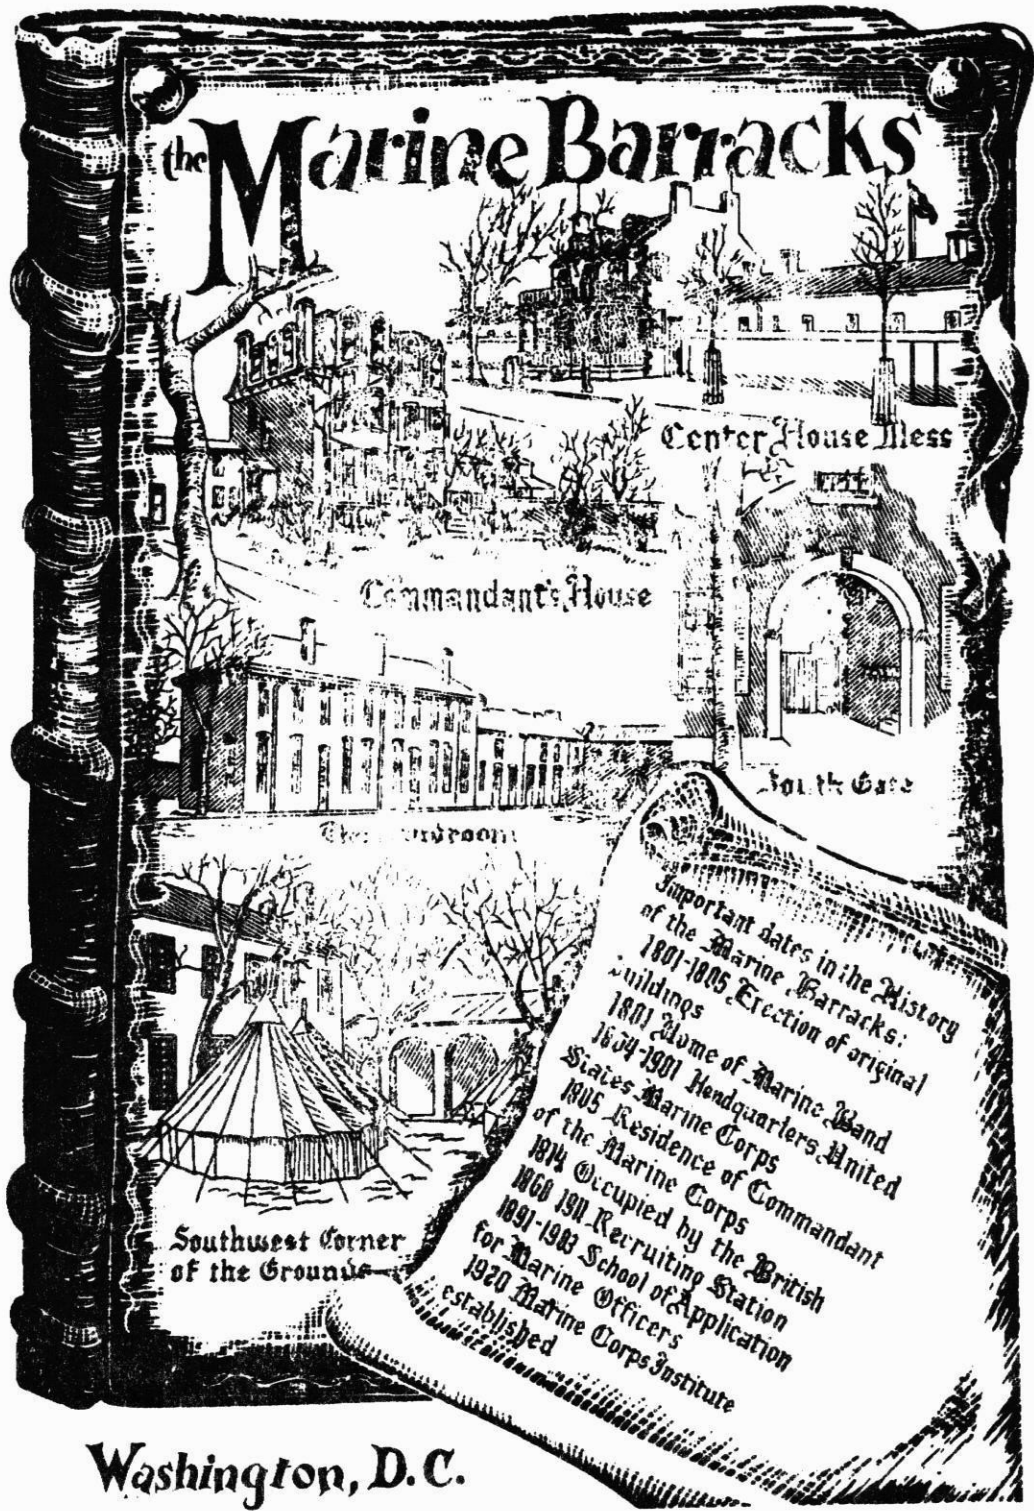 the Marine Barracks
Center House Mess
Commandant's House
South Gate
Important dates in the History
of the Marine Barracks:
1801-1805 Erection of original
buildings
1801 Home of Marine Band
1834-1901 Headquarters United
States Marine Corps
1805 Residence of Commandant
of the Marine Corps
1814 Occupied by the British
1868 1911 Recruiting Station
1891-1903 School of Application
for Marine Officers
1920 Marine Corps Institute
established
Southwest Corner
of the Grounds
Washington, D.C.